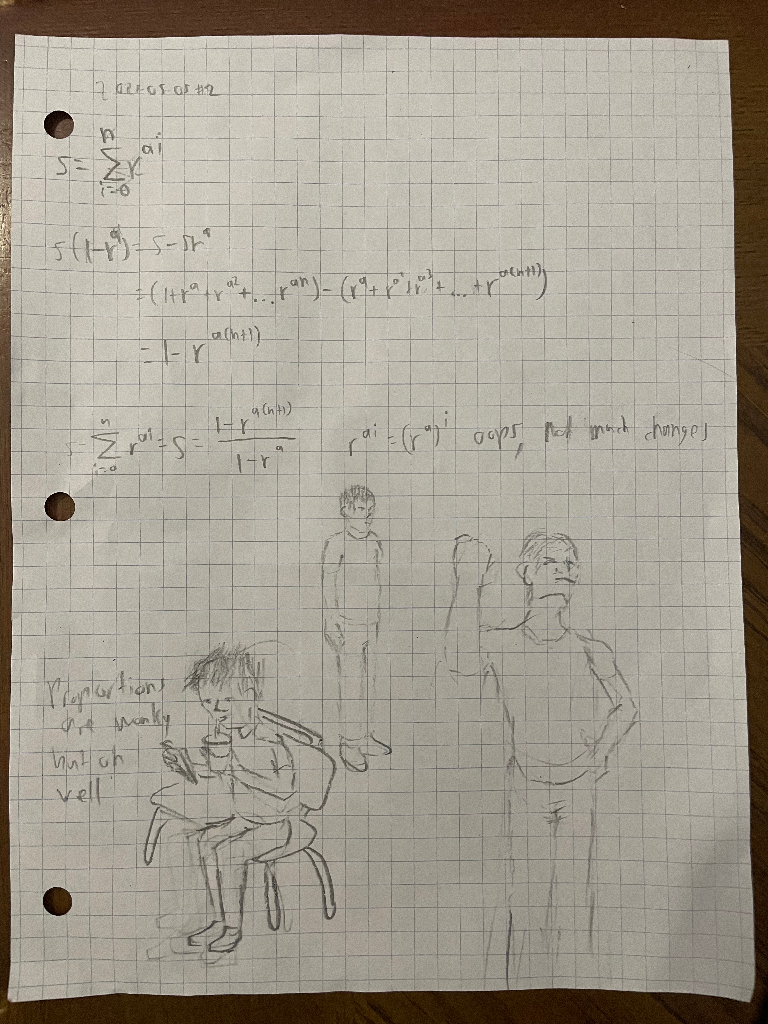 S = \sum_{i=0}^{n} r^{ai}
S(1-r^a) = S - Sr^a
= (1+r^a+r^{a2}+...r^{an}) - (r^a+r^{a2}+r^{a3}+...+r^{a(n+1)})
= 1 - r^{a(n+1)}
\sum_{i=0}^{n} r^{ai} = S = \frac{1-r^{a(n+1)}}{1-r^a} r^{ai} = (r^a)^i oops, not much changes
Proportions
are wonky
but oh
well